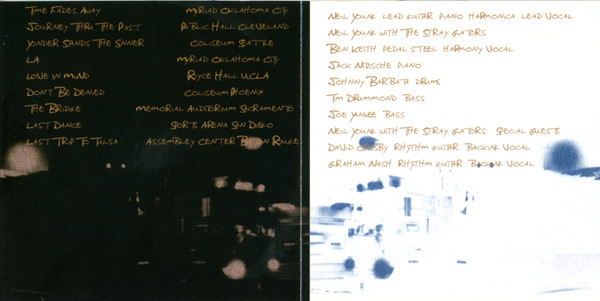 Time Fades Away Myriad Oklahoma City
Journey Thru The Past Public Hall Cleveland
Yonder Stands The Sinner Coliseum Seattle
L.A. Myriad Oklahoma City
Love in Mind Royce Hall UCLA
Don't Be Denied Coliseum Phoenix
The Bridge Memorial Auditorium Sacramento
Last Dance Sports Arena San Diego
Last Trip To Tulsa Assembley Center Baton Rouge
Neil Young lead guitar piano harmonica lead vocal
Neil Young with The Stray Gators
Ben Keith pedal steel harmony vocal
Jack Nitzsche piano
Johnny Barbata drums
Tim Drummond bass
Joe Yankee bass
Neil Young with The Stray Gators special guests
David Crosby rhythm guitar backing vocal
Graham Nash rhythm guitar backing vocal